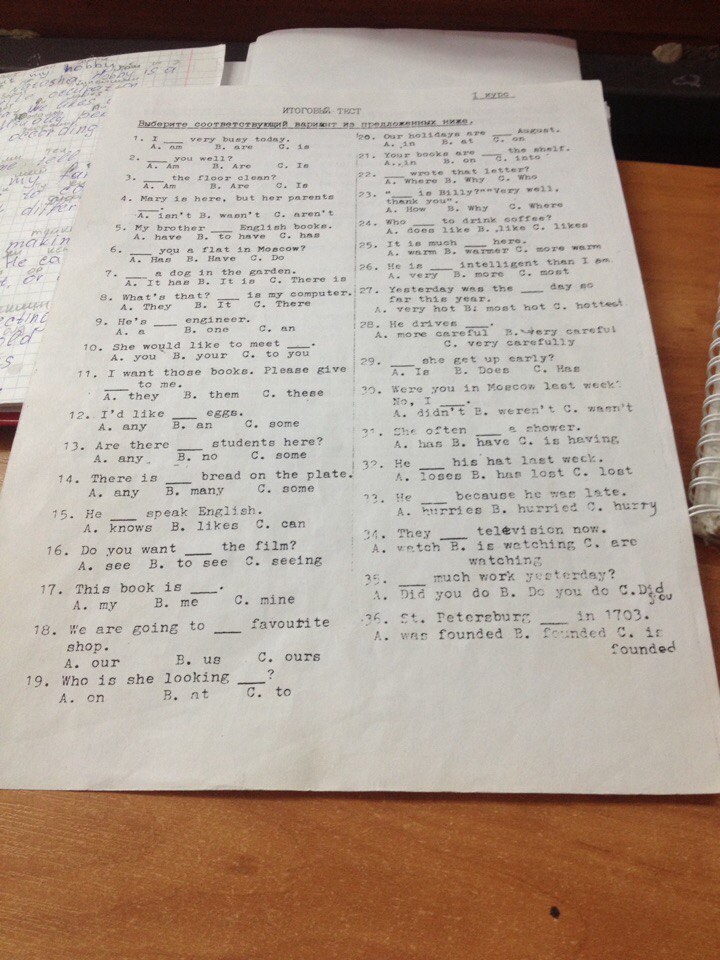 I курс
ИТОГОВЫЙ ТЕСТ
Выберите соответствующий вариант из предложенных ниже.
1. I ___ very busy today.
A. am B. are C. is
2. ___ you well?
A. Am B. Are C. Is
3. ___ the floor clean?
A. Am B. Are C. Is
4. Mary is here, but her parents
___.
A. isn't B. wasn't C. aren't
5. My brother ___ English books.
A. have B. to have C. has
6. ___ you a flat in Moscow?
A. Has B. Have C. Do
7. ___ a dog in the garden.
A. It has B. It is C. There is
8. What's that? ___ is my computer.
A. They B. It C. There
9. He's ___ engineer.
A. a B. one C. an
10. She would like to meet ___.
A. you B. your C. to you
11. I want those books. Please give
___ to me.
A. they B. them C. these
12. I'd like ___ eggs.
A. any B. an C. some
13. Are there ___ students here?
A. any B. no C. some
14. There is ___ bread on the plate.
A. any B. many C. some
15. He ___ speak English.
A. knows B. likes C. can
16. Do you want ___ the film?
A. see B. to see C. seeing
17. This book is ___.
A. my B. me C. mine
18. We are going to ___ favourite
shop.
A. our B. us C. ours
19. Who is she looking ___?
A. on B. at C. to
20. Our holidays are ___ August.
A. in B. at C. on
21. Your books are ___ the shelf.
A. in B. on C. into
22. ___ wrote that letter?
A. Where B. Why C. Who
23. "___ is Billy?""Very well,
thank you".
A. How B. Why C. Where
24. Who ___ to drink coffee?
A. does like B. like C. likes
25. It is much ___ here.
A. warm B. warmer C. more warm
26. He is ___ intelligent than I am.
A. very B. more C. most
27. Yesterday was the ___ day so
far this year.
A. very hot B. most hot C. hottest
28. He drives ___.
A. more careful B. very careful
C. very carefully
29. ___ she get up early?
A. Is B. Does C. Has
30. Were you in Moscow last week?
No, I ___.
A. didn't B. weren't C. wasn't
31. She often ___ a shower.
A. has B. have C. is having
32. He ___ his hat last week.
A. loses B. has lost C. lost
33. He ___ because he was late.
A. hurries B. hurried C. hurry
34. They ___ television now.
A. watch B. is watching C. are
watching
35. ___ much work yesterday?
A. Did you do B. Do you do C. Did
you
36. St. Petersburg ___ in 1703.
A. was founded B. founded C. is
founded